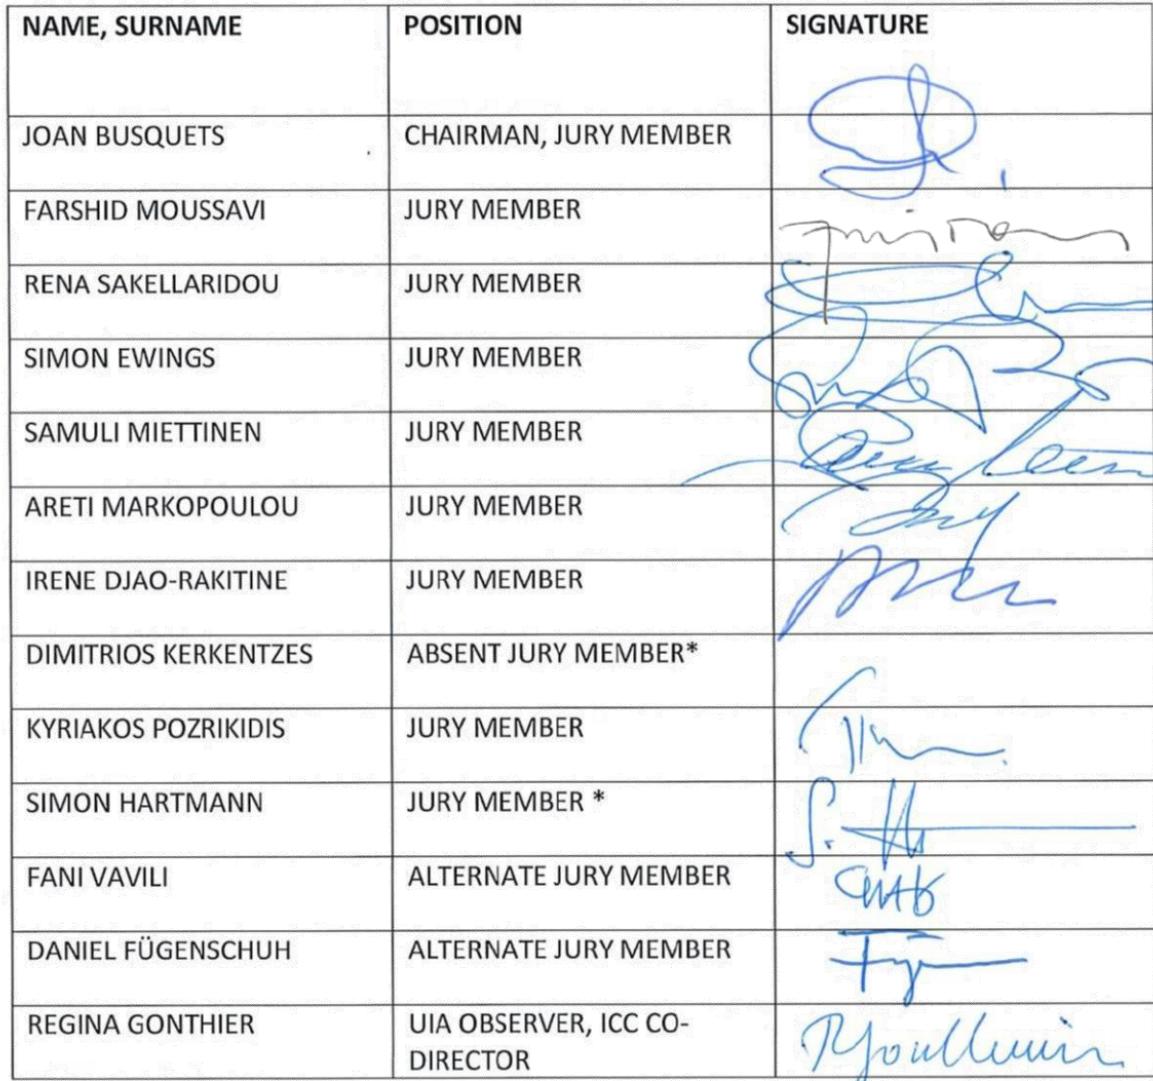 NAME, SURNAME POSITION SIGNATURE
JOAN BUSQUETS CHAIRMAN, JURY MEMBER
FARSHID MOUSSAVI JURY MEMBER
RENA SAKELLARIDOU JURY MEMBER
SIMON EWINGS JURY MEMBER
SAMULI MIETTINEN JURY MEMBER
ARETI MARKOPOULOU JURY MEMBER
IRENE DJAO-RAKITINE JURY MEMBER
DIMITRIOS KERKENTZES ABSENT JURY MEMBER*
KYRIAKOS POZRIKIDIS JURY MEMBER
SIMON HARTMANN JURY MEMBER *
FANI VAVILI ALTERNATE JURY MEMBER
DANIEL FÜGENSCHUH ALTERNATE JURY MEMBER
REGINA GONTHIER UIA OBSERVER, ICC CO-
DIRECTOR